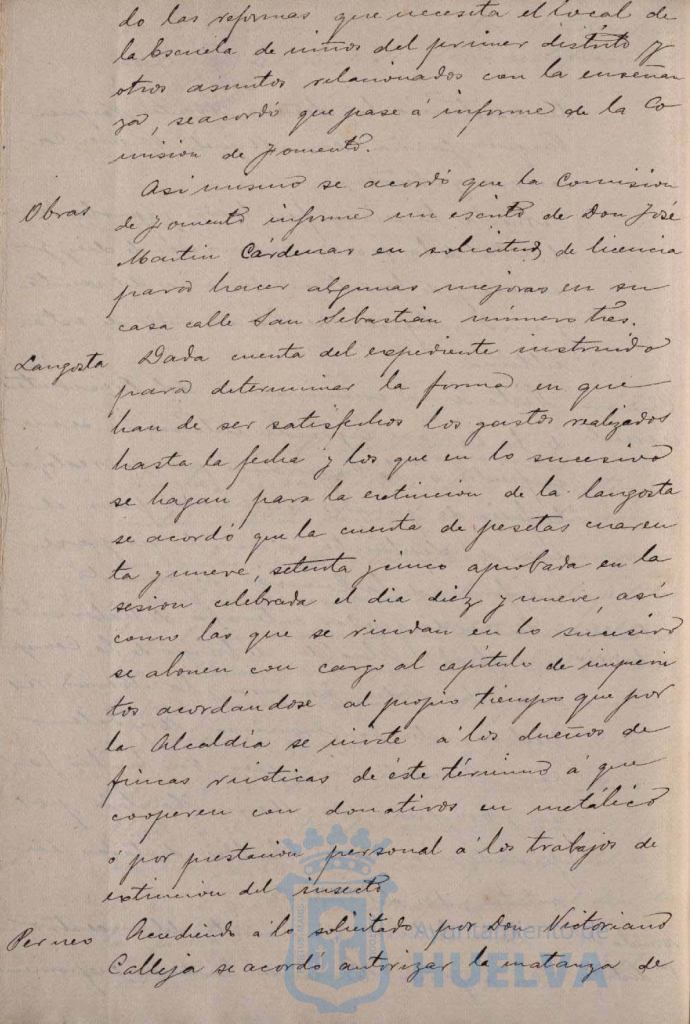 do las reformas que necesita el local de
la Escuela de niños del primer distrito y
otros asuntos relacionados con la enseñan
za, se acordó que pase á informe de la Co
misión de Fomento.
Obras
Asi mismo se acordó que la Comision
de Fomento informe un escrito de Don José
Martin Cárdenas en solicitud de licencia
para hacer algunas mejoras en su
casa calle San Sebastián número tres.
Langosta
Dada cuenta del expediente instruido
para determinar la forma en que
han de ser satisfechos los gastos realizados
hasta la fecha y los que en lo sucesivo
se hagan para la extincion de la langosta
se acordó que la cuenta de pesetas cuaren
ta y nueve, setenta y cinco aprobada en la
sesion celebrada el dia diez y nueve, así
como las que se rindan en lo sucesivo
se abonen con cargo al capítulo de imprevis
tos acordándose al propio tiempo que por
la Alcaldía se invite á los dueños de
fincas rústicas de éste término á que
cooperen con donativos en metálico
ó por prestacion personal á los trabajos de
extincion del insecto
Accediendo á lo solicitado por Don Victoriano
Calleja se acordó autorizar la matanza de
Ayuntamiento de
HUELVA